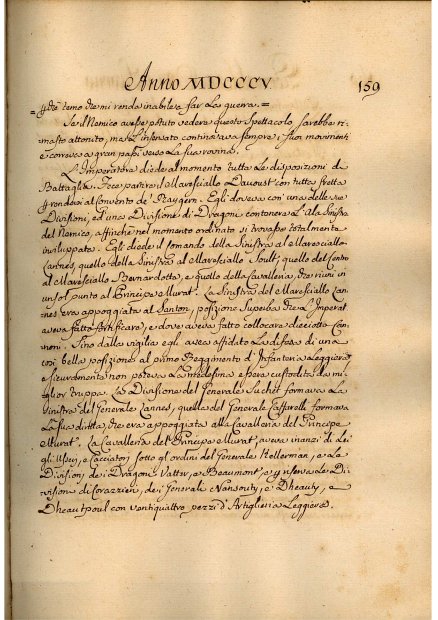 Anno MDCCCV
159
che temo che mi renda inabile a far la guerra. =
Se il Nemico avesse potuto vedere questo spettacolo sarebbe ri-
masto attonito, ma l'insensato continuava sempre i suoi movimenti
e correva a gran passi verso la sua rovina.
L'Imperatore diede al momento tutte le disposizioni di
Battaglia. Fece partire il Maresciallo Davoust con tutta fretta
rendersi al Convento de' Raygern. Egli doveva con una delle sue
Divisioni, ed una Divisione di Dragoni contenere l'Ala Sinistra
del Nemico, affinchè nel momento ordinato si trovasse totalmente
inviluppata. Egli diede il Comando della Sinistra al Maresciallo
Lannes, quello della Sinistra al Maresciallo Soult, quello del Centro
al Maresciallo Bernardotte, e quello della Cavalleria, che riunì in
un sol punto al Principe Murat. La Sinistra del Maresciallo Lan-
nes era appoggiata al Santon, posizione superba che l'Imperat.
aveva fatto fortificare, e dove aveva fatto collocare dieciotto Can-
noni. Sino dalla vigilia egli aveva affidato la difesa di una
così bella posizione al primo Reggimento d'Infanteria Leggiera
e sicuramente non poteva la medesima essere custodita da mi-
glior truppa. La Divisione del Generale Suchet formava la
Sinistra del Generale Lannes, quella del Generale Caffarelli formava
la sua diritta, che era appoggiata alla Cavalleria del Principe
Murat. La Cavalleria del Principe Murat, aveva inanzi di lei
gli Usseri, e Cacciatori sotto gli ordini del Generale Kellerman, e le
Divisioni de i Dragoni Valter, e Beaumont, e riserva le Di-
visione di Corazzieri, de i Generali Nansouty, e Dheauty, e
Dheautpoul con ventiquattro pezzi d'Artiglieria Leggiera.